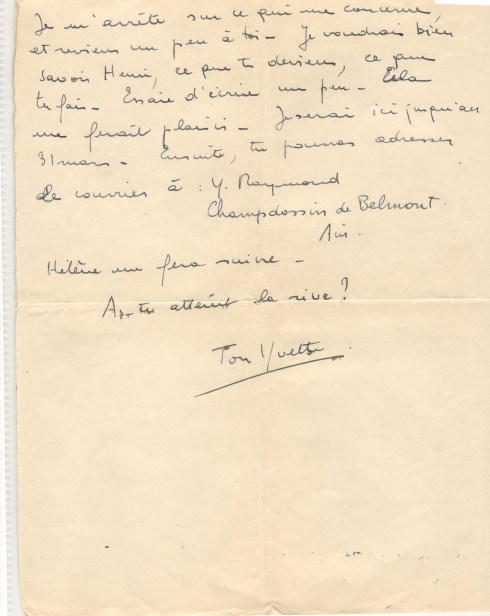 Je m'arrête sur ce qui me concerne,
et reviens un peu à toi - Je voudrais bien
savoir Henri, ce que tu deviens, ce que
tu fais - Essaie d'écrire un peu - Cela
me ferait plaisir - Je serai ici jusqu'au
31 mars - Ensuite, tu pourras adresser
le courrier à : Y. Raymond
Champdossin de Belmont.
Ain.
Hélène me fera suivre -
As-tu atteint la rive ?
Ton Yvette